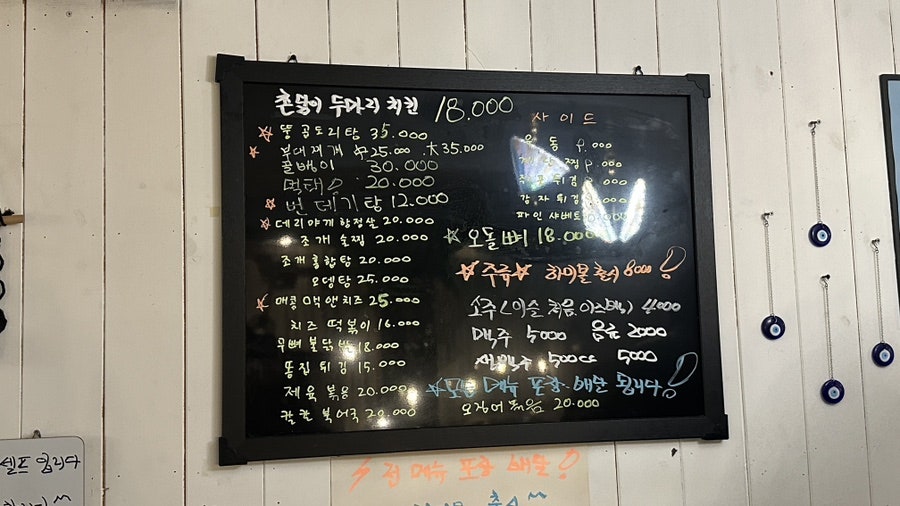 촌닭이 두마리 치킨 18.000
닭곰도리탕 35.000
부대찌개 中25.000 大35.000
골뱅이 30.000
먹태 20.000
번데기탕 12.000
데리야끼 항정살 20.000
조개 술찜 20.000
조개 홍합탕 20.000
오뎅탕 25.000
매콤 먹앤치즈 25.000
치즈 떡볶이 16.000
무뼈 불닭발 18.000
똥집 튀김 15.000
제육 볶음 20.000
칼칼 북어국 20.000
사이드
우동
튀김
감자튀김
파인 샤베트
오돌뼈 18.000
주류 하이볼 출시 8000
소주 (이슬 처음 4000
맥주 5000 음료 2000
생맥주 500cc 5000
모든 메뉴 포장·배달 됩니다
오징어볶음 20.000
전 메뉴 포장 배달
출시
셀프 입니다